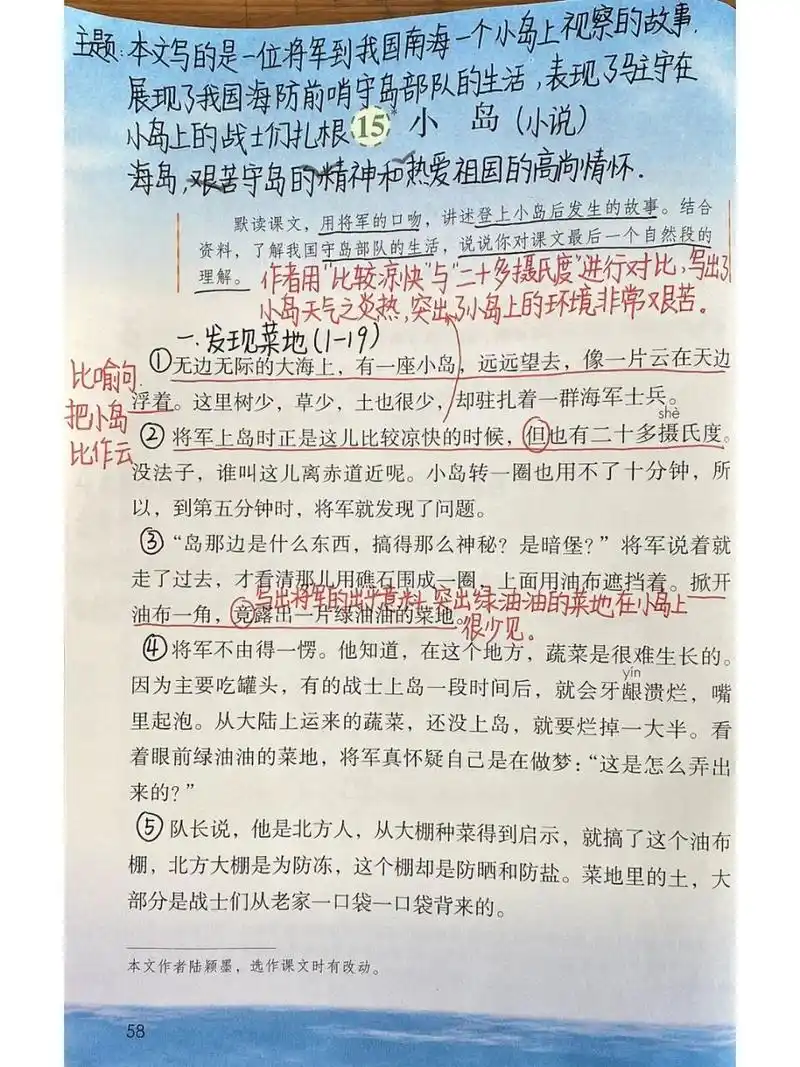 主题:本文写的是一位将军到我国南海一个小岛上视察的故事.
展现了我国海防前哨守岛部队的生活,表现了驻守在
小岛上的战士们扎根
15* 小 岛 (小说)
海岛,艰苦守岛的精神和热爱祖国的高尚情怀.
默读课文,用将军的口吻,讲述登上小岛后发生的故事。结合
资料,了解我国守岛部队的生活,说说你对课文最后一个自然段的
理解。
作者用"比较凉快"与"二十多摄氏度"进行对比,写出了
小岛天气之炎热,突出了小岛上的环境非常艰苦。
一.发现菜地(1-19)
比喻句.
把小岛
比作云
①无边无际的大海上,有一座小岛,远远望去,像一片云在天边
浮着。这里树少,草少,土也很少,却驻扎着一群海军士兵。
shè
②将军上岛时正是这儿比较凉快的时候,但也有二十多摄氏度。
没法子,谁叫这儿离赤道近呢。小岛转一圈也用不了十分钟,所
以,到第五分钟时,将军就发现了问题。
③“岛那边是什么东西,搞得那么神秘?是暗堡?”将军说着就
走了过去,才看清那儿用礁石围成一圈,上面用油布遮挡着。掀开
写出将军的出乎意料,突出绿油油的菜地在小岛上
很少见。
油布一角,竟露出一片绿油油的菜地。
④将军不由得一愣。他知道,在这个地方,蔬菜是很难生长的。
yín
因为主要吃罐头,有的战士上岛一段时间后,就会牙龈溃烂,嘴
里起泡。从大陆上运来的蔬菜,还没上岛,就要烂掉一大半。看
着眼前绿油油的菜地,将军真怀疑自己是在做梦:“这是怎么弄出
来的?”
⑤队长说,他是北方人,从大棚种菜得到启示,就搞了这个油布
棚,北方大棚是为防冻,这个棚却是防晒和防盐。菜地里的土,大
部分是战士们从老家一口袋一口袋背来的。
本文作者陆颖墨,选作课文时有改动。
58